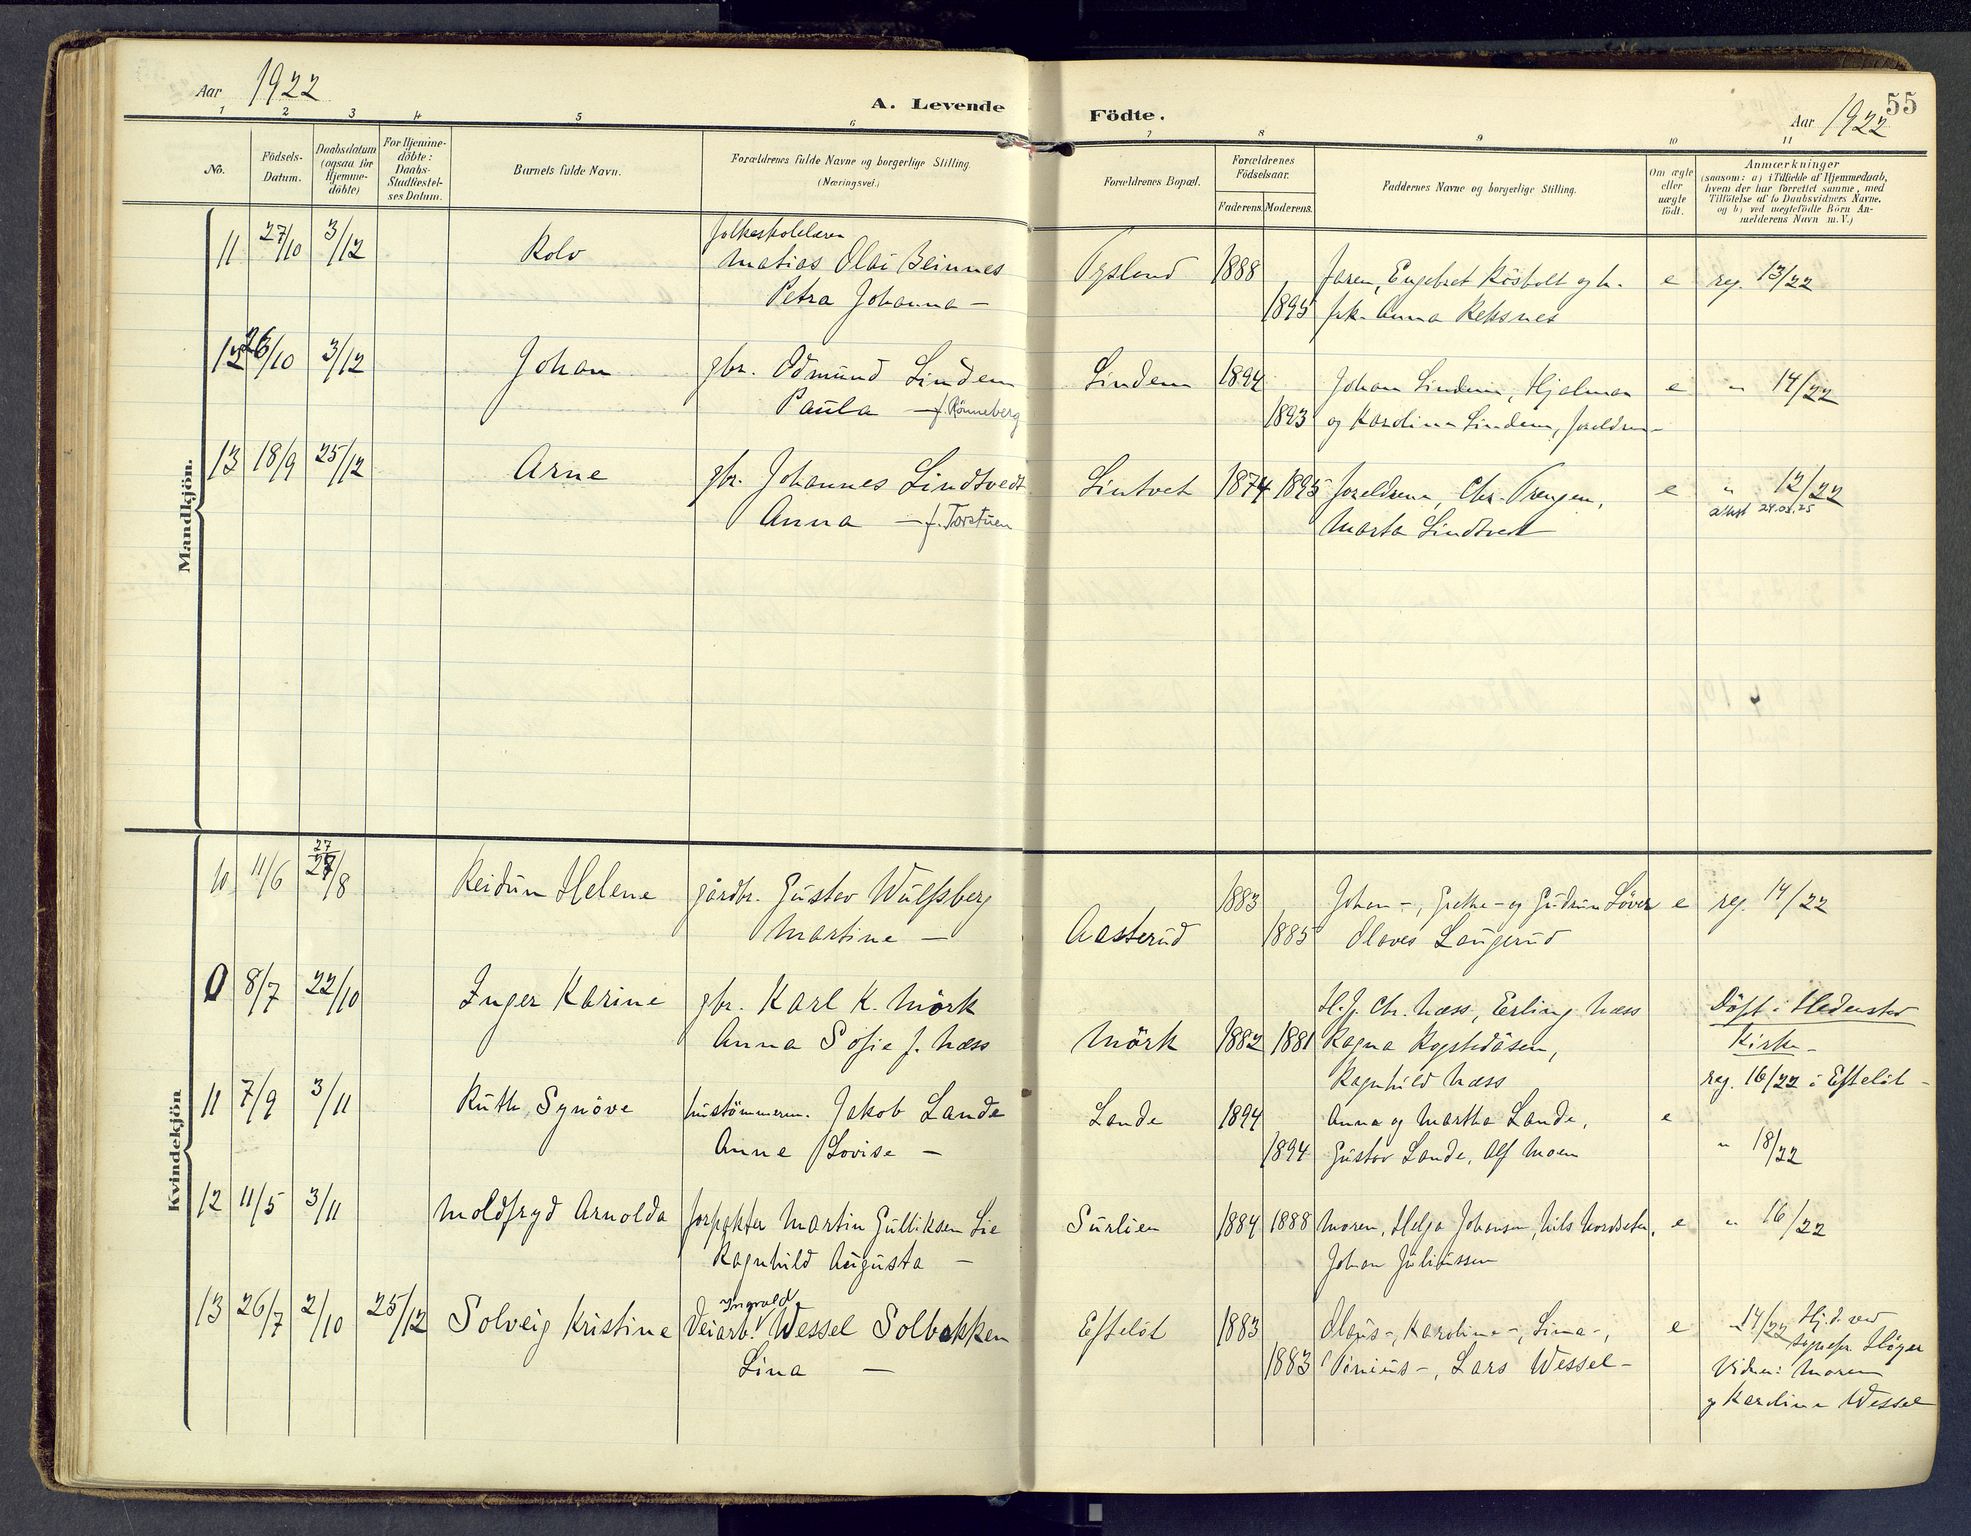 Aar 1922
A. Levende Födte.
55
Aar 1922
1 2 3 4 5 6 7 8 9 10 11
No.
Födsels-Datum.
Daabsdatum (ogsaa for Hjemme-döbte)
For Hjemme-döbte: Daabs-Stadfæstel-ses Datum.
Barnets fulde Navn.
Forældrenes fulde Navne og borgerlige Stilling.
(Næringsvei.)
Forældrenes Bopæl.
Forældrenes Födselsaar.
Faderens. Moderens.
Faddernes Navne og borgerlige Stilling.
Om ægte eller uægte födt.
Anmærkninger
(saasom: a) i Tilfælde af Hjemmedaab,
hvem der har forrettet samme, med
Tilföielse af to Daabsvidners Navne,
og b) ved uægtefödte Börn An-
melderens Navn m. V.)
Mandkjön.
folkeskolelærer
11 27/10 3/12 Rolv Matias Olai Beinnes Tysland 1888 Faren, Engebret Kösholt og h. e reg. 13/22
Petra Johanna — 1895 frk. Anna Reksnes
12 26/10 3/12 Johan gbr. Odmund Lindem Lindem 1894 Johan Lindem, Hjalmar e " 14/22
Paula — f. Rönneberg 1893 og Karoline Lindem, foreldrene
13 18/9 25/12 Arne gbr. Johannes Lindtvedt Lintvet 1874 1895 foreldrene, Chr. Trengen, e " 12/22
Anna — f. Torstuen Marta Lindtvedt attest 24.02.25
Kvindekjön
27
10 11/6 27/8 Reidun Helene gårdbr. Gustav Wulfsberg Aasterud 1883 Johan -, Grethe - og Gudrun Löver e reg. 14/22
Martine — 1885 Olaves Laugerud
0 8/7 22/10 Inger Karine gbr. Karl K. Mörk H.J. Chr. Næss, Erling Næss Döpt i Hedenstad
Anna Sofie f. Næss Mörk 1882 1881 Ragna Rogstadåsen, Kirke —
Ragnhild Næss reg. 16/22 i Efteløt —
11 7/9 3/11 Ruth Synöve hustömmerm. Jakob Lande Lande 1894 Anna og Martha Lande, e
Anne Lovise — 1894 Gustav Lande, Alf Moen " 18/22
12 11/5 3/11 Moldfryd Arnolda forpakter Martin Gulliksen Lie Surlien 1884 1888 Moren, Helga Johansen, Nils Nordseter, e " 16/22
Ragnhild Augusta — Johan Juliussen
Ingvald
13 26/7 2/10 25/12 Solveig Kristine Veiarb. Wessel Solbakken Efteløt 1883 Olaus -, Karoline -, Lina -, e - 14/22 Hj.d. ved
Lina — 1883 -, Lars Wessel - Höyer
Vidner: Moren
og Karoline Wessel